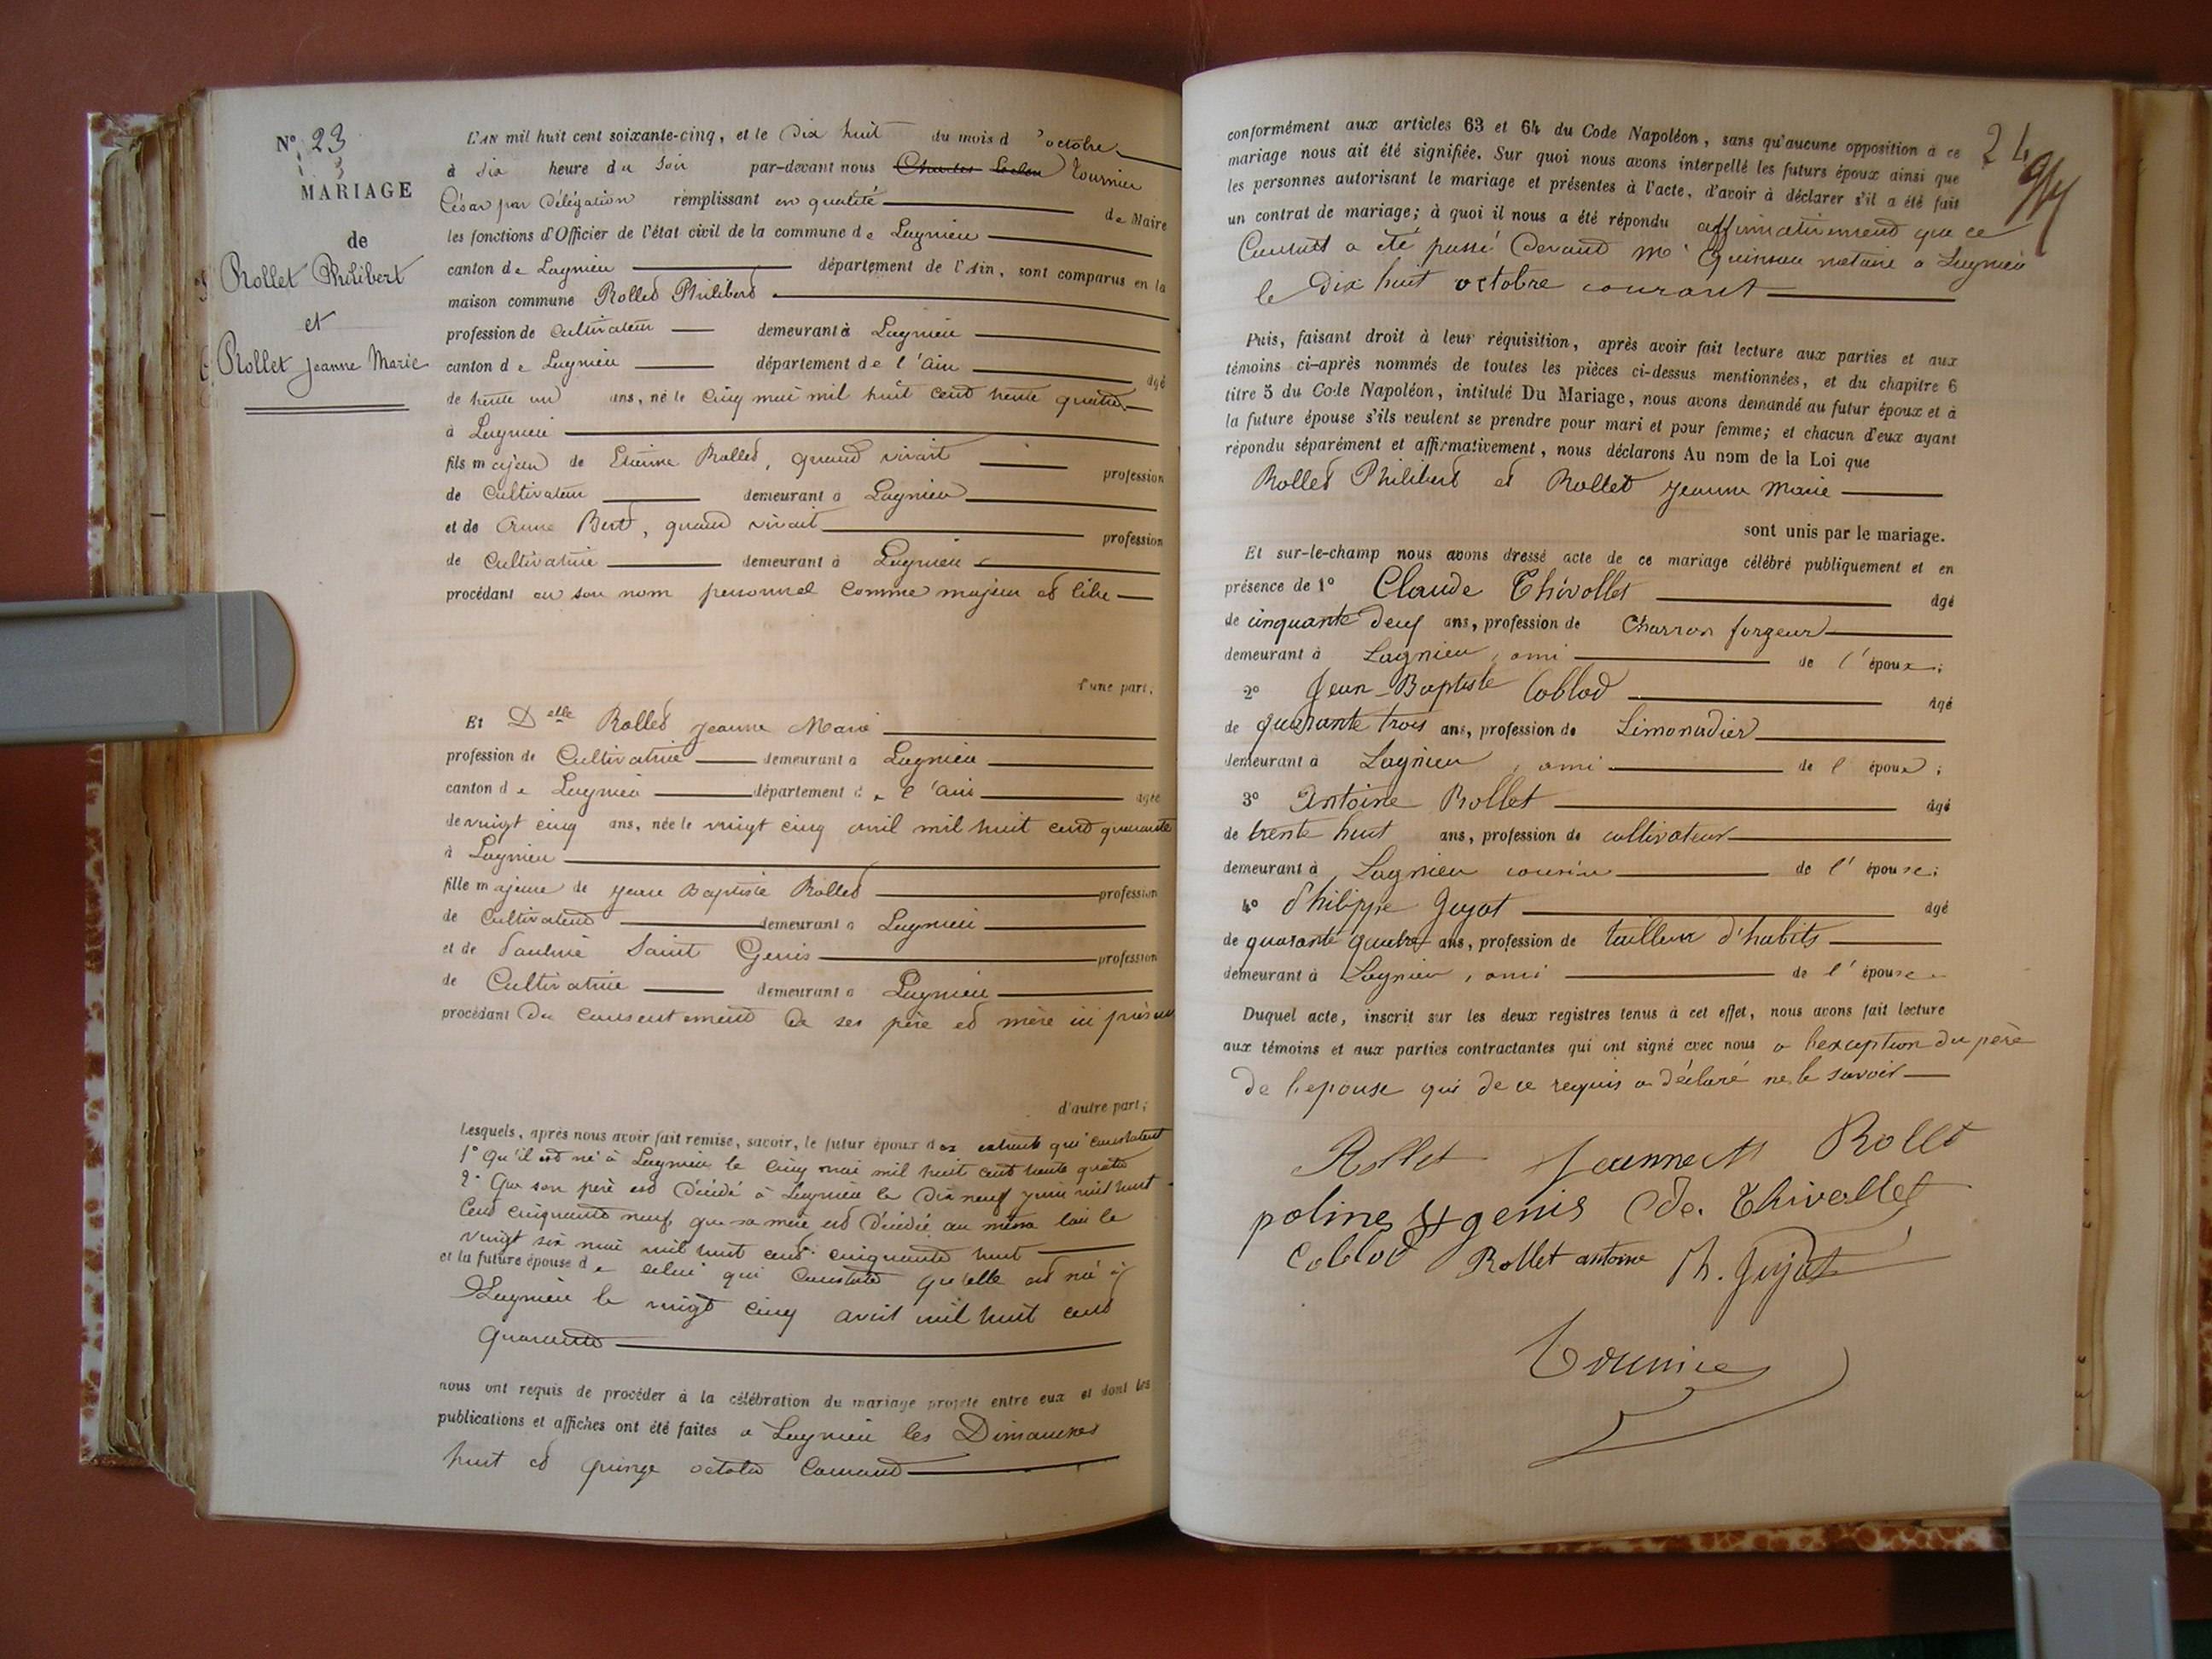 N° 23
3
MARIAGE
de
Rollet Philibert
et
Rollet Jeanne Marie
L'AN mil huit cent soixante-cinq, et le Dix huit du mois d'octobre
à six heure du Soir par-devant nous Tournier
César par Délégation remplissant en qualité de Maire
les fonctions d'Officier de l'état civil de la commune de Lagnieu
canton de Lagnieu département de l'Ain, sont comparus en la
maison commune Rollet Philibert
profession de Cultivateur demeurant à Lagnieu
canton de Lagnieu département de l'Ain âgé
de trente un ans, né le Cinq mai mil huit cent trente quatre
à Lagnieu
fils majeur de Etienne Rollet, quand vivait profession
de Cultivateur demeurant à Lagnieu
et de Anne Bert, quand vivait profession
de Cultivatrice demeurant à Lagnieu
procédant en son nom personnel comme majeur et libre
d'une part,
Et Delle Rollet Jeanne Marie
profession de Cultivatrice demeurant à Lagnieu
canton de Lagnieu département de l'Ain âgée
de vingt cinq ans, née le vingt cinq avril mil huit cent quarante
à Lagnieu
fille majeure de Jean Baptiste Rollet profession
de Cultivateur demeurant à Lagnieu
et de Pauline Saint Genis profession
de Cultivatrice demeurant à Lagnieu
procédant du consentement de ses père et mère ici présents
d'autre part;
Lesquels, après nous avoir fait remise, savoir, le futur époux des extraits qui constatent
1° Qu'il est né à Lagnieu le cinq mai mil huit cent trente quatre
2° Que son père est décédé à Lagnieu le Dix neuf juin mil huit
cent cinquante neuf, que sa mère est décédée au même lieu le
vingt six mai mil huit cent cinquante huit
et la future épouse de celui qui constate qu'elle est née à
Lagnieu le vingt cinq avril mil huit cent
quarante
nous ont requis de procéder à la célébration du mariage projeté entre eux et dont les
publications et affiches ont été faites à Lagnieu les Dimanches
huit et quinze octobre Courant
24
conformément aux articles 63 et 64 du Code Napoléon, sans qu'aucune opposition à ce
mariage nous ait été signifiée. Sur quoi nous avons interpellé les futurs époux ainsi que
les personnes autorisant le mariage et présentes à l'acte, d'avoir à déclarer s'il a été fait
un contrat de mariage; à quoi il nous a été répondu affirmativement que ce
Contrat a été passé devant me Quinson notaire à Lagnieu
le Dix huit octobre courant
Puis, faisant droit à leur réquisition, après avoir fait lecture aux parties et aux
témoins ci-après nommés de toutes les pièces ci-dessus mentionnées, et du chapitre 6
titre 5 du Code Napoléon, intitulé Du Mariage, nous avons demandé au futur époux et à
la future épouse s'ils veulent se prendre pour mari et pour femme; et chacun d'eux ayant
répondu séparément et affirmativement, nous déclarons Au nom de la Loi que
Rollet Philibert et Rollet Jeanne Marie
sont unis par le mariage.
Et sur-le-champ nous avons dressé acte de ce mariage célébré publiquement et en
présence de 1° Claude Thivollet âgé
de cinquante deux ans, profession de Charron forgeur
demeurant à Lagnieu, ami de l'époux;
2° Jean-Baptiste Coblod âgé
de quarante trois ans, profession de Limonadier
demeurant à Lagnieu, ami de l'époux;
3° Antoine Rollet âgé
de trente huit ans, profession de cultivateur
demeurant à Lagnieu cousin de l'épouse;
4° Philippe Guyot âgé
de quarante quatre ans, profession de tailleur d'habits
demeurant à Lagnieu, ami de l'épouse
Duquel acte, inscrit sur les deux registres tenus à cet effet, nous avons fait lecture
aux témoins et aux parties contractantes qui ont signé avec nous a l'exception du père
de l'epouse qui de ce requis a déclaré ne le savoir
Rollet Jeanne M Rollet
poline St genis Cde. Thivollet
Coblod Rollet antoine Ph. Guyot
Tournier